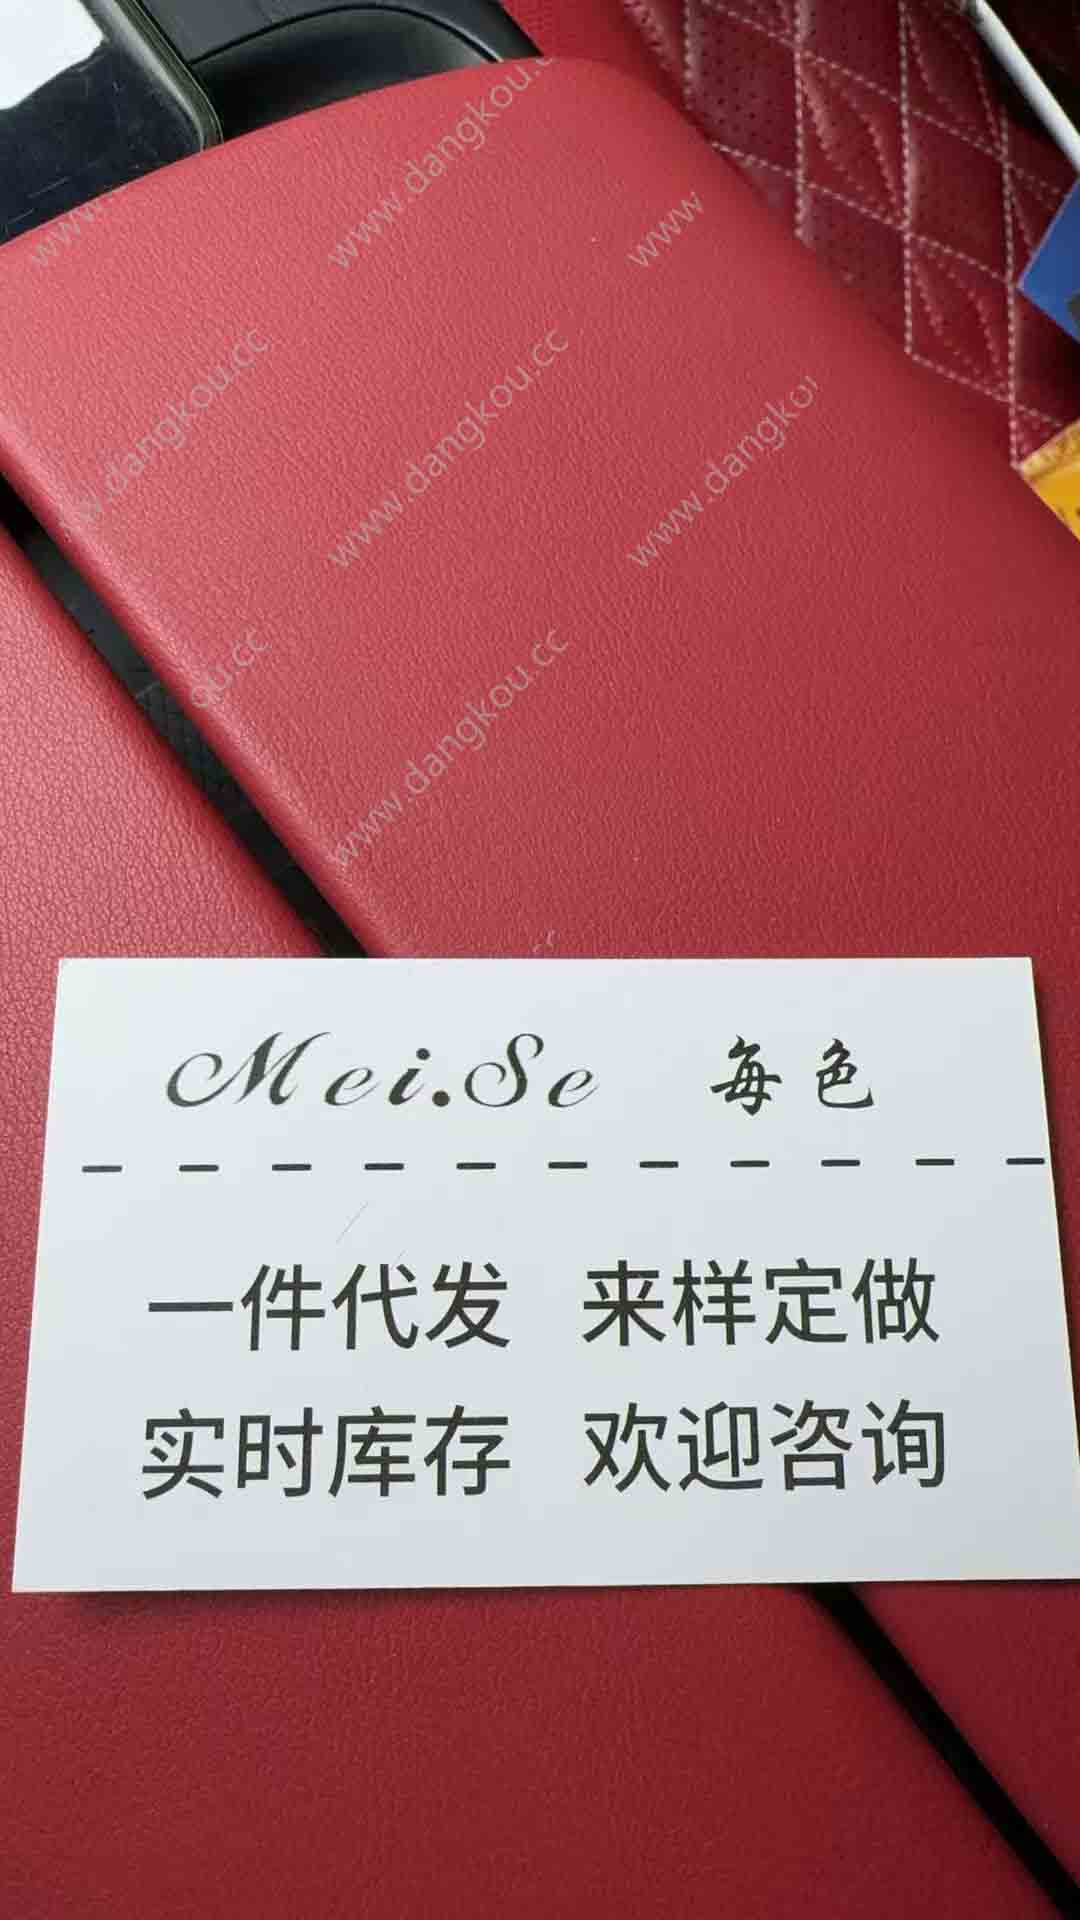 www.dangkou.c
www
www.dangkou.cc
www.dangkou.cc
www.dangko
ou.cc
www.dangkou.cc
Mei.Se 每色
一件代发 来样定做
实时库存 欢迎咨询